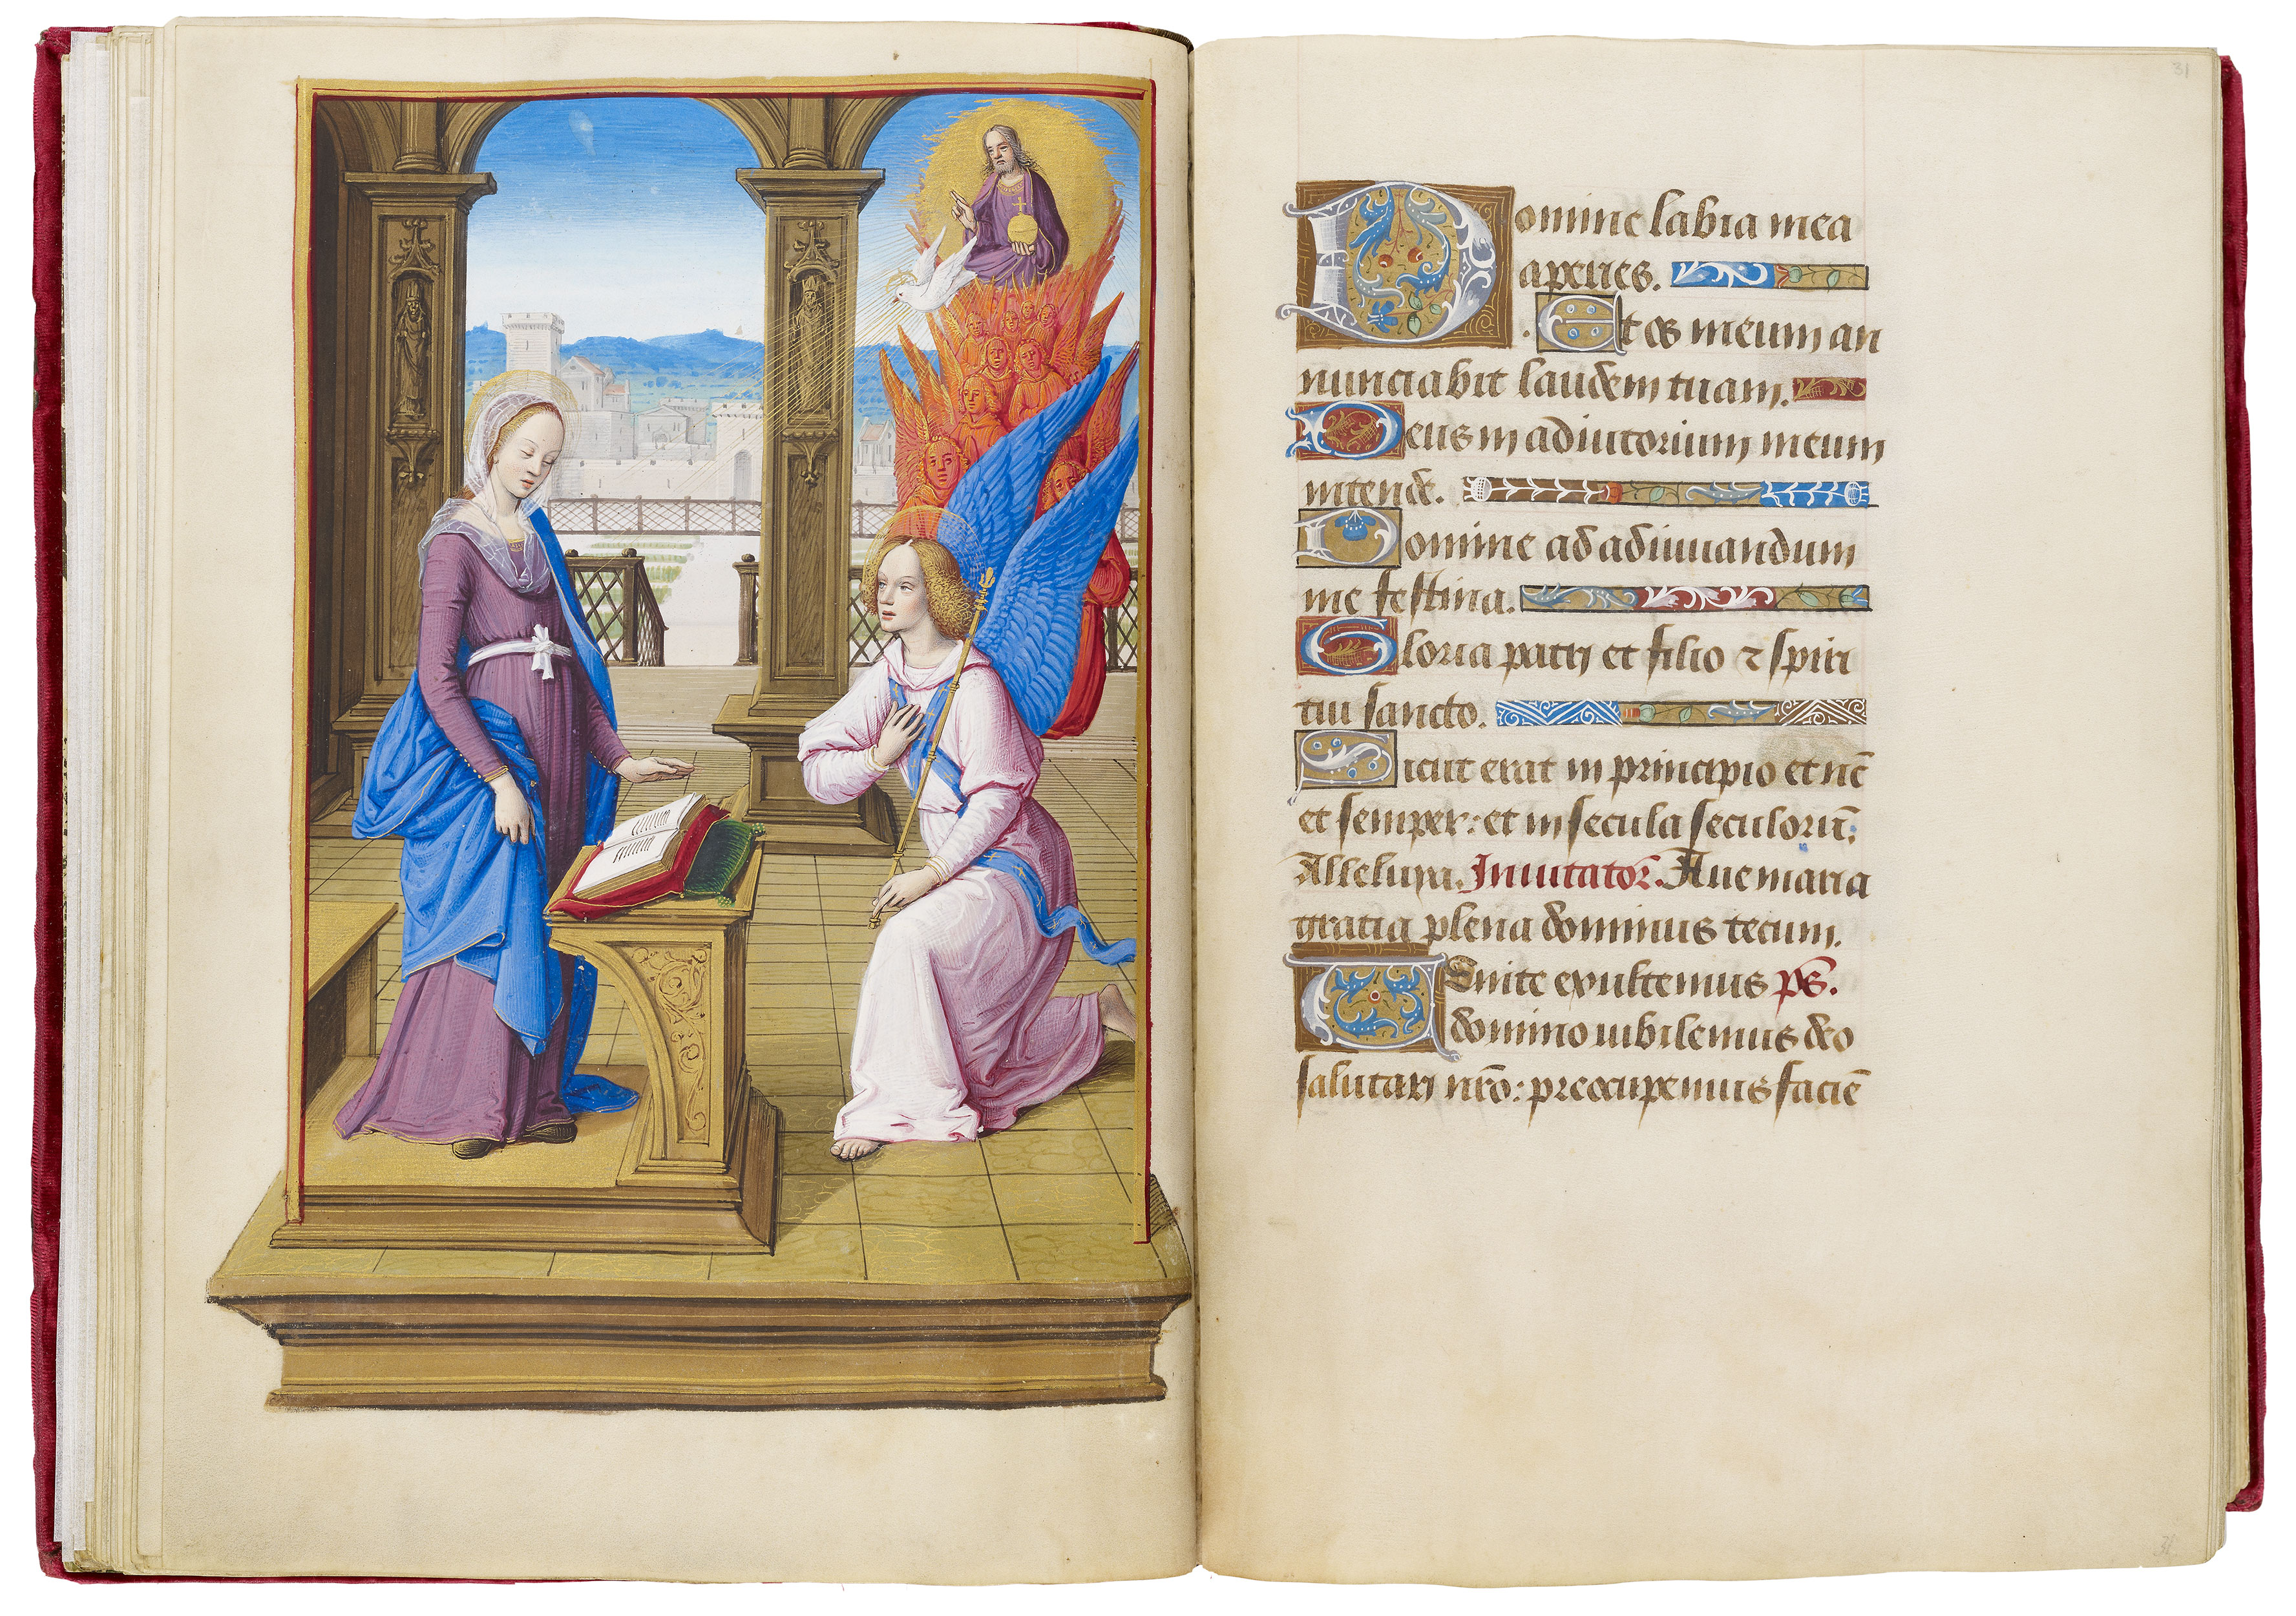 31
Domine labia mea
aperies.
Et os meum an
nunciabit laudem tuam.
Deus in adiutorium meum
intende.
Domine ad adiuuandum
me festina.
Gloria patri et filio ⁊ spiri
tui sancto.
Sicut erat in principio et nc̄
et semper: et in secula seculorū:
Alleluya. Inuitator̄. Aue maria
gratia plena dominus tecum.
Venite exultemus ps̄.
domino iubilemus deo
salutari nr̄o: preocupemus faciē
31